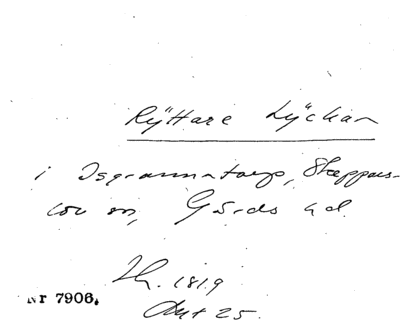 Rÿttare Lÿckan
i Isgrannatorp, Skeppars-
lövs sn, Gärds hd.
Lh. 1819
Akt 25.
Nr 7906.